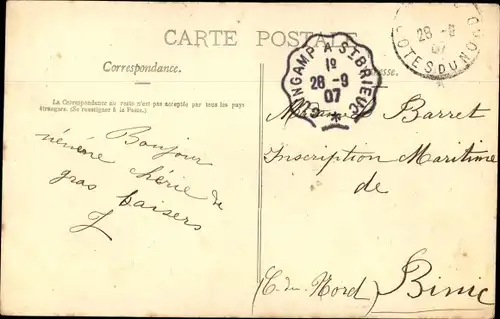 CARTE POSTALE
Correspondance.
La Correspondance au verso n'est pas acceptée par tous les pays
étrangers. (Se renseigner à la Poste.)
Bonjour
nénène chérie de
gros baisers
GUINGAMP A ST BRIEUC
1º
28-9
07
28-9
07
COTES DU NORD
Barret
Inscription Maritime
de
(C. du Nord) Binic